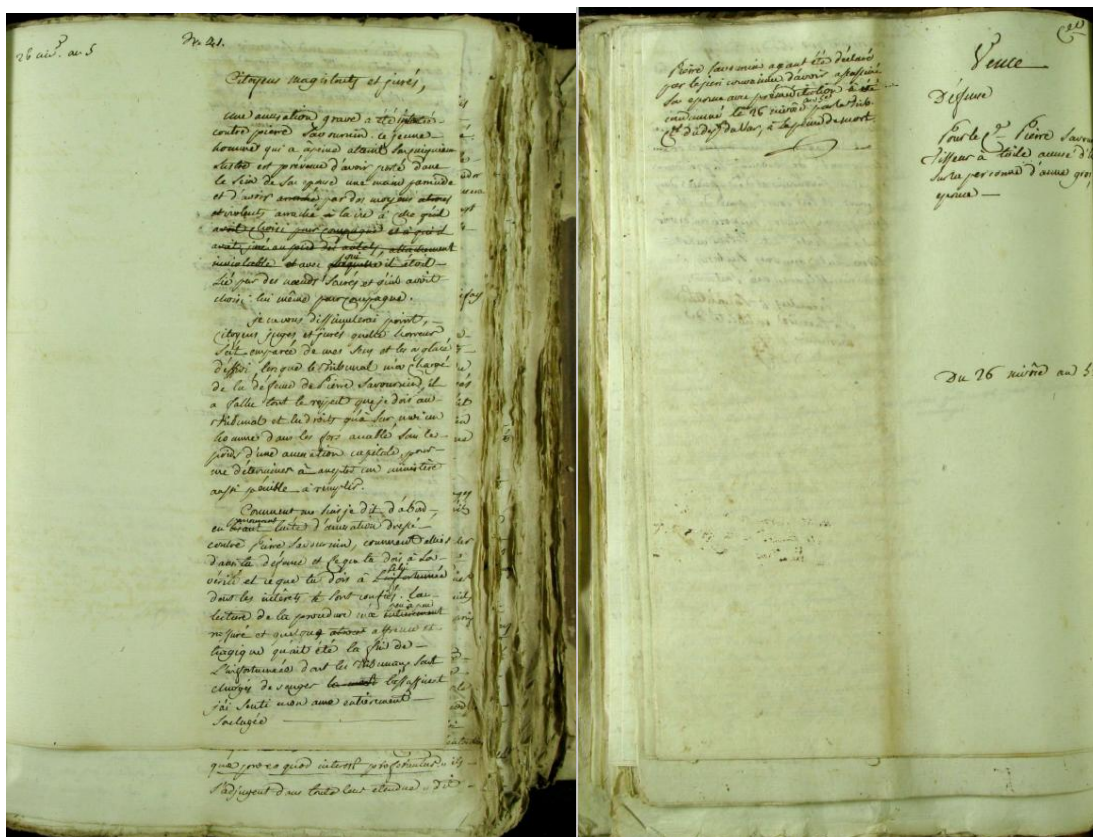 26 nivs. an 5
No. 41.
Citoyens magistrats et jurés,
une accusation grave a été
contre pierre Savournin. ce jeune
homme qui a à peine atteint
lustre est prévenu d'avoir porté dans
le sein de Son epouse une main
et d'avoir arraché par des moyens atroces
et violents arraché à la vie à celle qu'il
avait choisi pour compagne et à qui il
avait juré au pied des autels, attachement
inviolable et avec il étoit
Lié par des nœuds Sacrés et qu'il avoit
choisi lui même pour compagne.
je ne vous dissimulerai point,
Citoyens juges et jurés quelle horreur
s'est emparée de mes Sens et les a glacé
d'effroi lorsque le tribunal m'a chargé
de la défense de Pierre Savournin, il
a fallu tout le respect que je dois au
tribunal et les droits qu'a Sur moi un
homme dans les fers accablé Sous le
poids d'une accusation capitale, pour
me déterminer à accepter un ministère
aussi penible à remplir.
Comment me Suis je dit d'abord
en parcourant l'acte d'accusation dressé
contre Pierre Savournin, comment
dans ta défense et ce que tu dois à La
vérité et ce que tu dois à L'infortuné
dont les intérêts te Sont confiés. La
lecture de la procedure m'a peu à peu entièrement
rassuré et quelque atroce affreuse et
tragique qu'ait été la fin de
L'infortunée dont les tribunaux Sont
chargés de venger la mort l'assassinat
j'ai Senti mon ame entièrement
Soulagée
quod interest
S'adjugent dans toute leur étendue. dit
Pierre Savournin ayant été déclaré
par le juri convaincu d'avoir assassiné
Son epouse avec préméditation a été
condamné le 26 nivôse an 5e par le trib.
Cel du dept. du Var, à la peine de mort
Vence
Défense
Pour le Cn. Pierre Savour
Tisseur à toile accusé d'
Sur la personne d'anne
epouse
Du 26 nivôse an 5